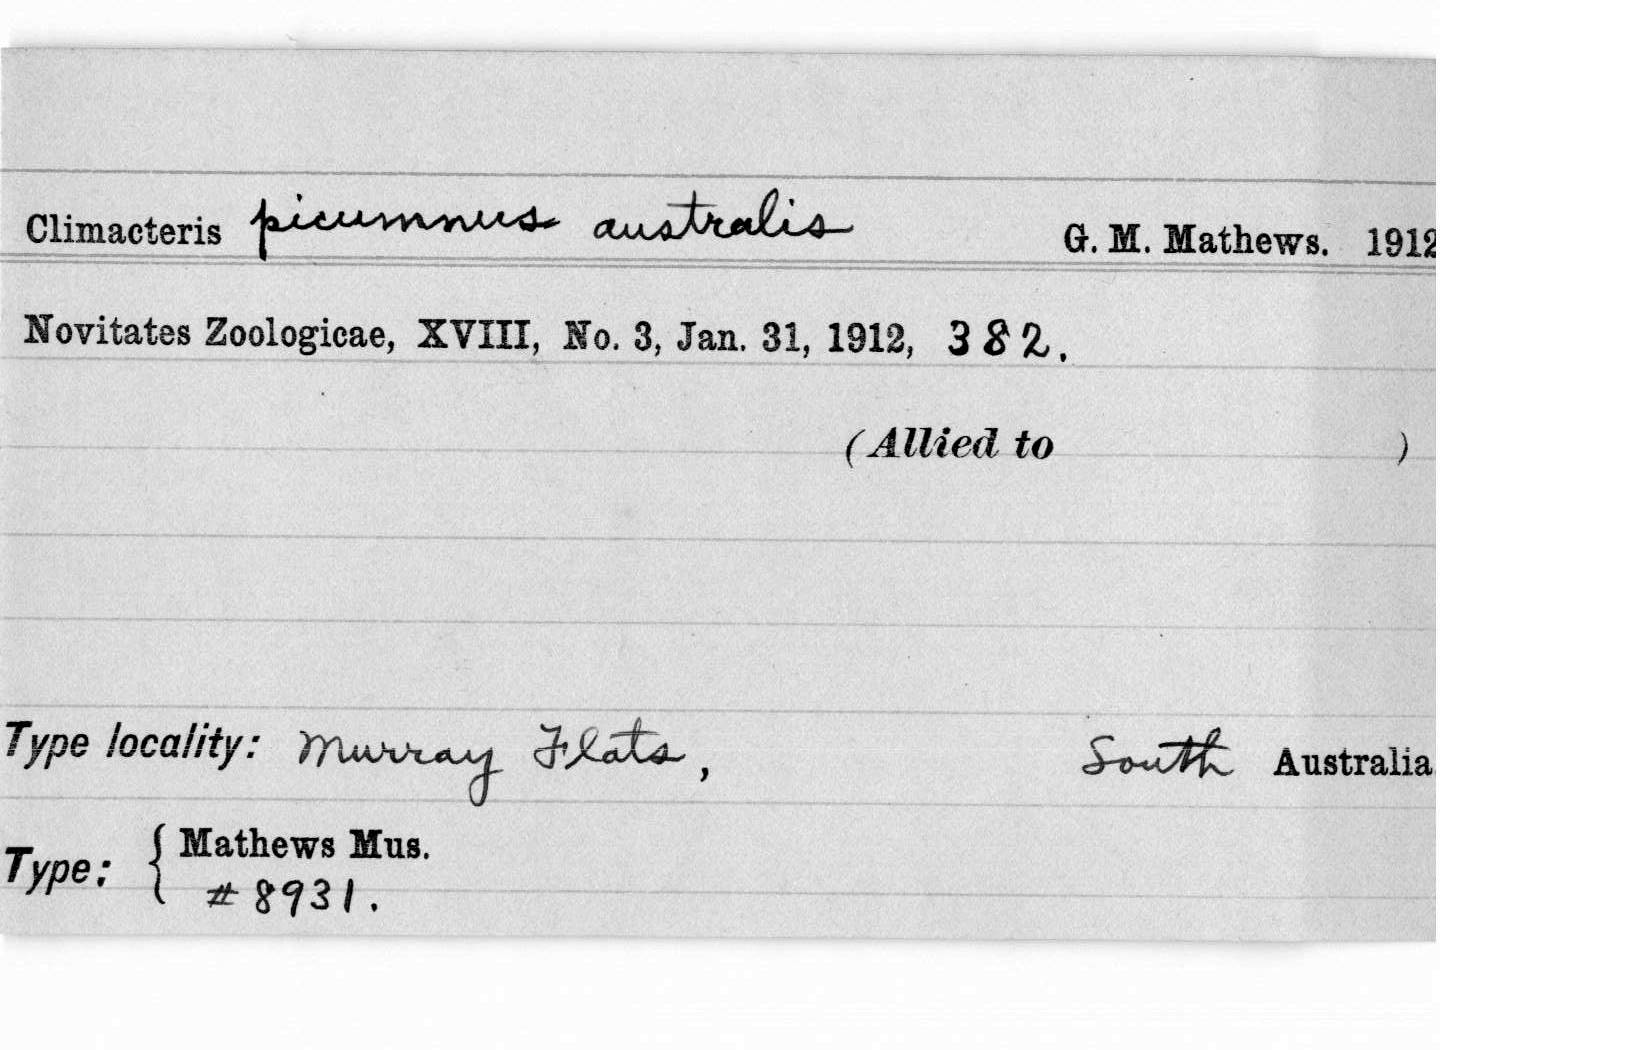 Climacteris picumnus australis G. M. Mathews. 1912
Novitates Zoologicae, XVIII, No. 3, Jan. 31, 1912, 382.
(Allied to )
Type locality: Murray Flats, South Australia
Type: { Mathews Mus.
# 8931.